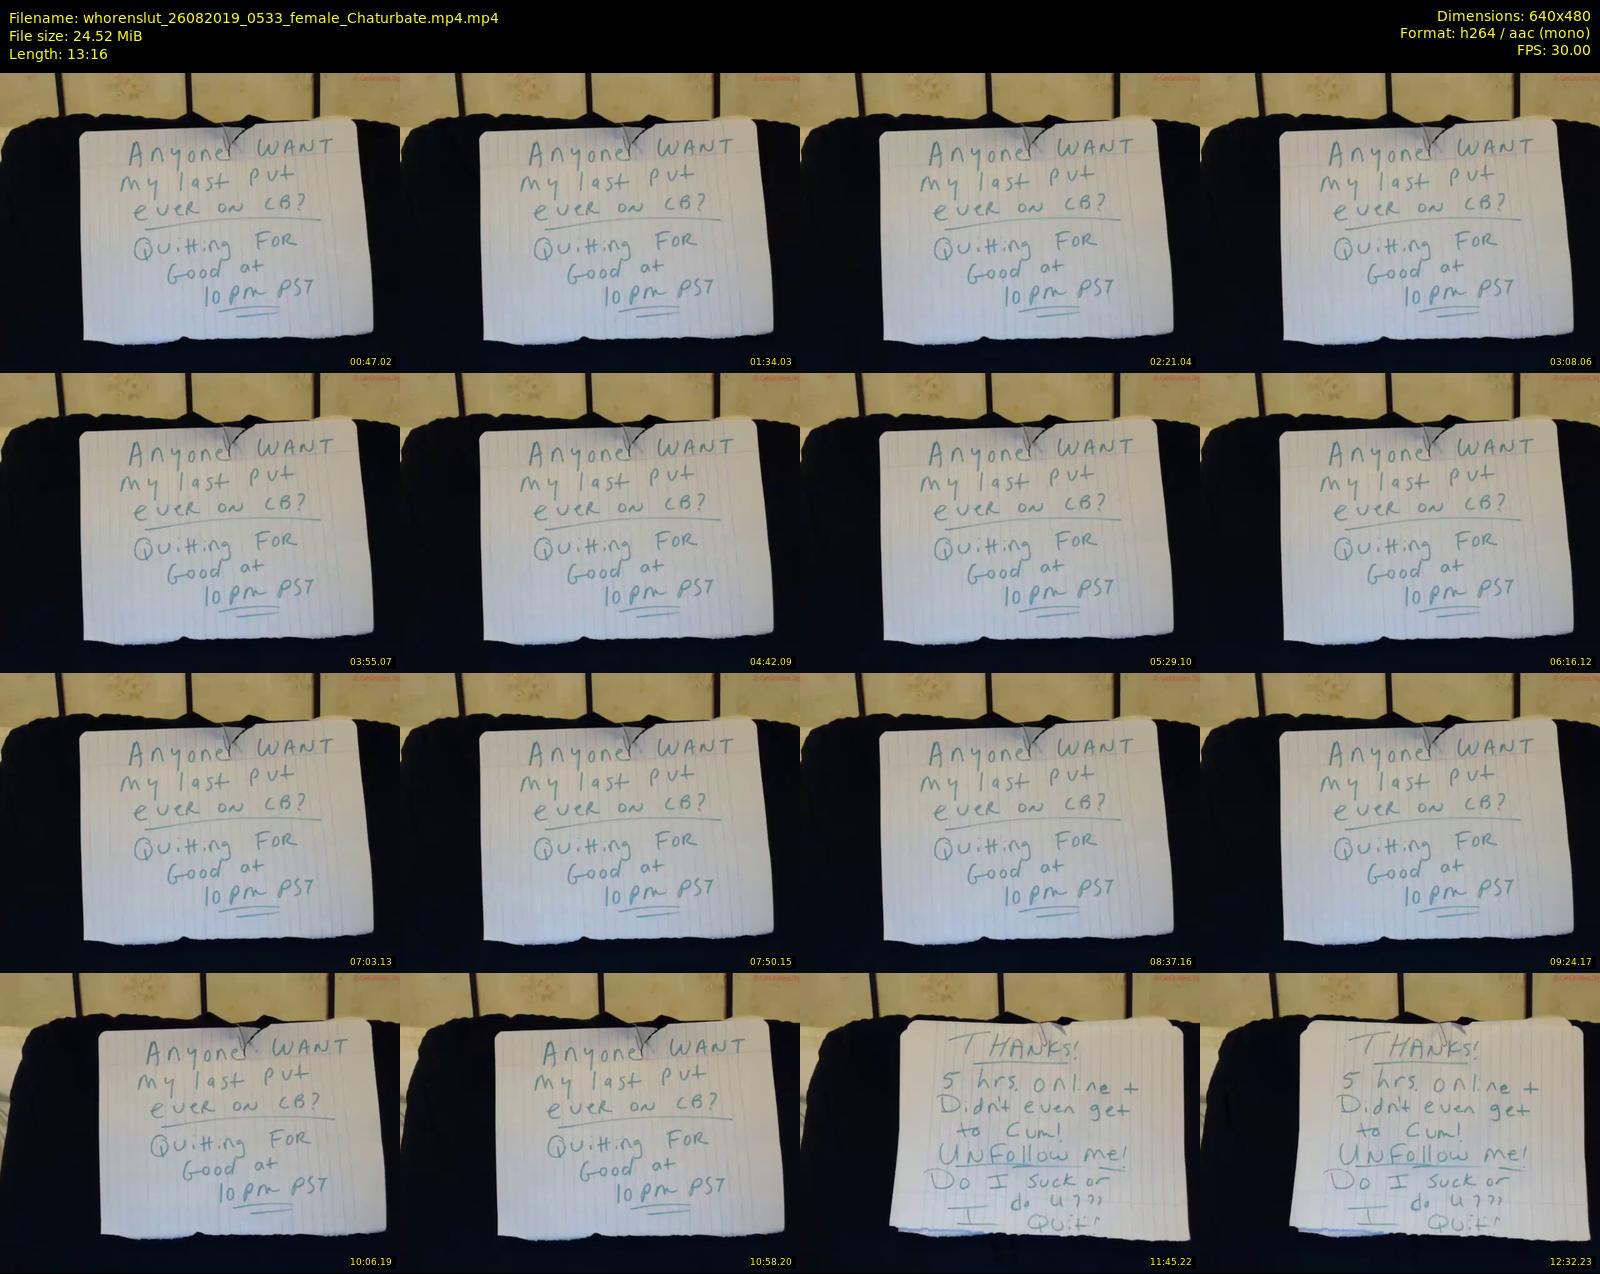 Filename: whorenslut_26082019_0533_female_Chaturbate.mp4.mp4
File size: 24.52 MiB
Length: 13:16
Dimensions: 640x480
Format: h264 / aac (mono)
FPS: 30.00
Anyone WANT
my last pvt
ever on CB?
Quitting FOR
Good at
10 pm PST
00:47.02
Anyone WANT
my last pvt
ever on CB?
Quitting FOR
Good at
10 pm PST
01:34.03
Anyone WANT
my last pvt
ever on CB?
Quitting FOR
Good at
10 pm PST
02:21.04
Anyone WANT
my last pvt
ever on CB?
Quitting FOR
Good at
10 pm PST
03:08.06
Anyone WANT
my last pvt
ever on CB?
Quitting FOR
Good at
10 pm PST
03:55.07
Anyone WANT
my last pvt
ever on CB?
Quitting FOR
Good at
10 pm PST
04:42.09
Anyone WANT
my last pvt
ever on CB?
Quitting FOR
Good at
10 pm PST
05:29.10
Anyone WANT
my last pvt
ever on CB?
Quitting FOR
Good at
10 pm PST
06:16.12
Anyone WANT
my last pvt
ever on CB?
Quitting FOR
Good at
10 pm PST
07:03.13
Anyone WANT
my last pvt
ever on CB?
Quitting FOR
Good at
10 pm PST
07:50.15
Anyone WANT
my last pvt
ever on CB?
Quitting FOR
Good at
10 pm PST
08:37.16
Anyone WANT
my last pvt
ever on CB?
Quitting FOR
Good at
10 pm PST
09:24.17
Anyone WANT
my last pvt
ever on CB?
Quitting FOR
Good at
10 pm PST
10:06.19
Anyone WANT
my last pvt
ever on CB?
Quitting FOR
Good at
10 pm PST
10:58.20
THANKS!
5 hrs. online +
Didn't even get
to Cum!
UNFollow me!
Do I suck or
do u???
I Quit!
11:45.22
THANKS!
5 hrs. online +
Didn't even get
to Cum!
UNFollow me!
Do I suck or
do u???
I Quit!
12:32.23